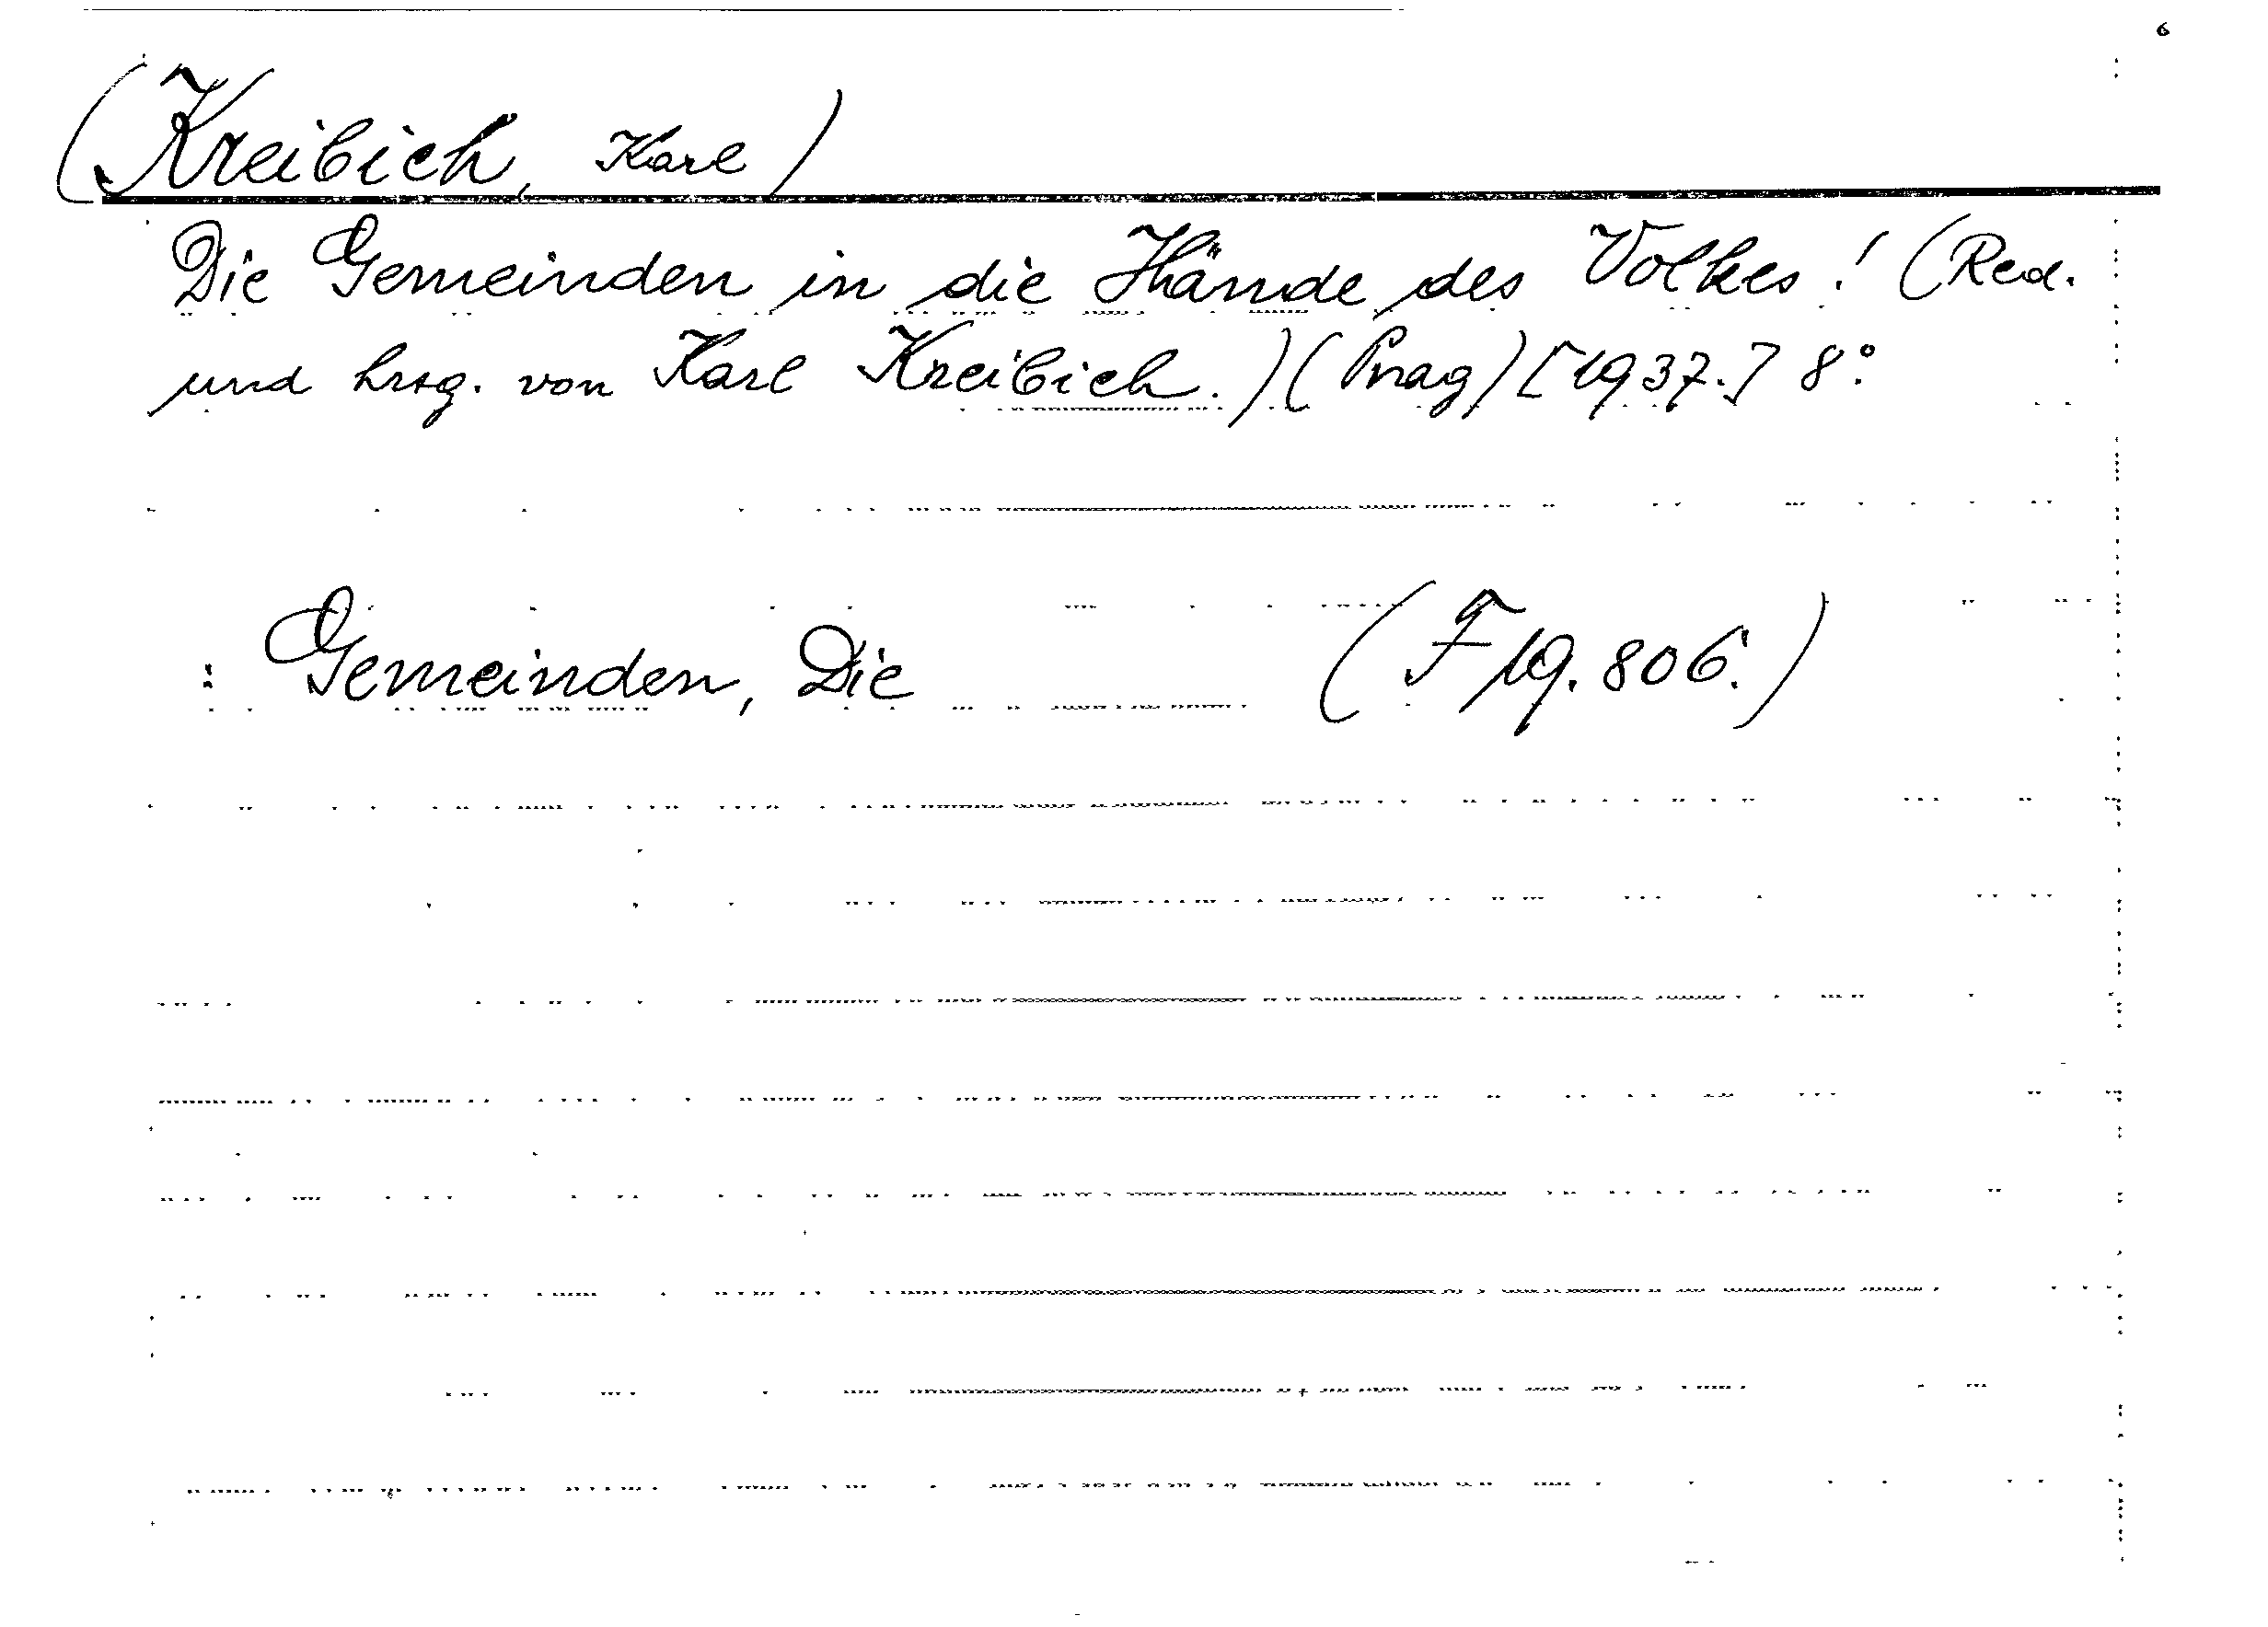 6
(Kreibich, Karl)
Die Gemeinden in die Hände des Volkes! (Red.
und hrsg. von Karl Kreibich.) (Prag) [1937.] 8°.
: Gemeinden, Die (F 19.806.)